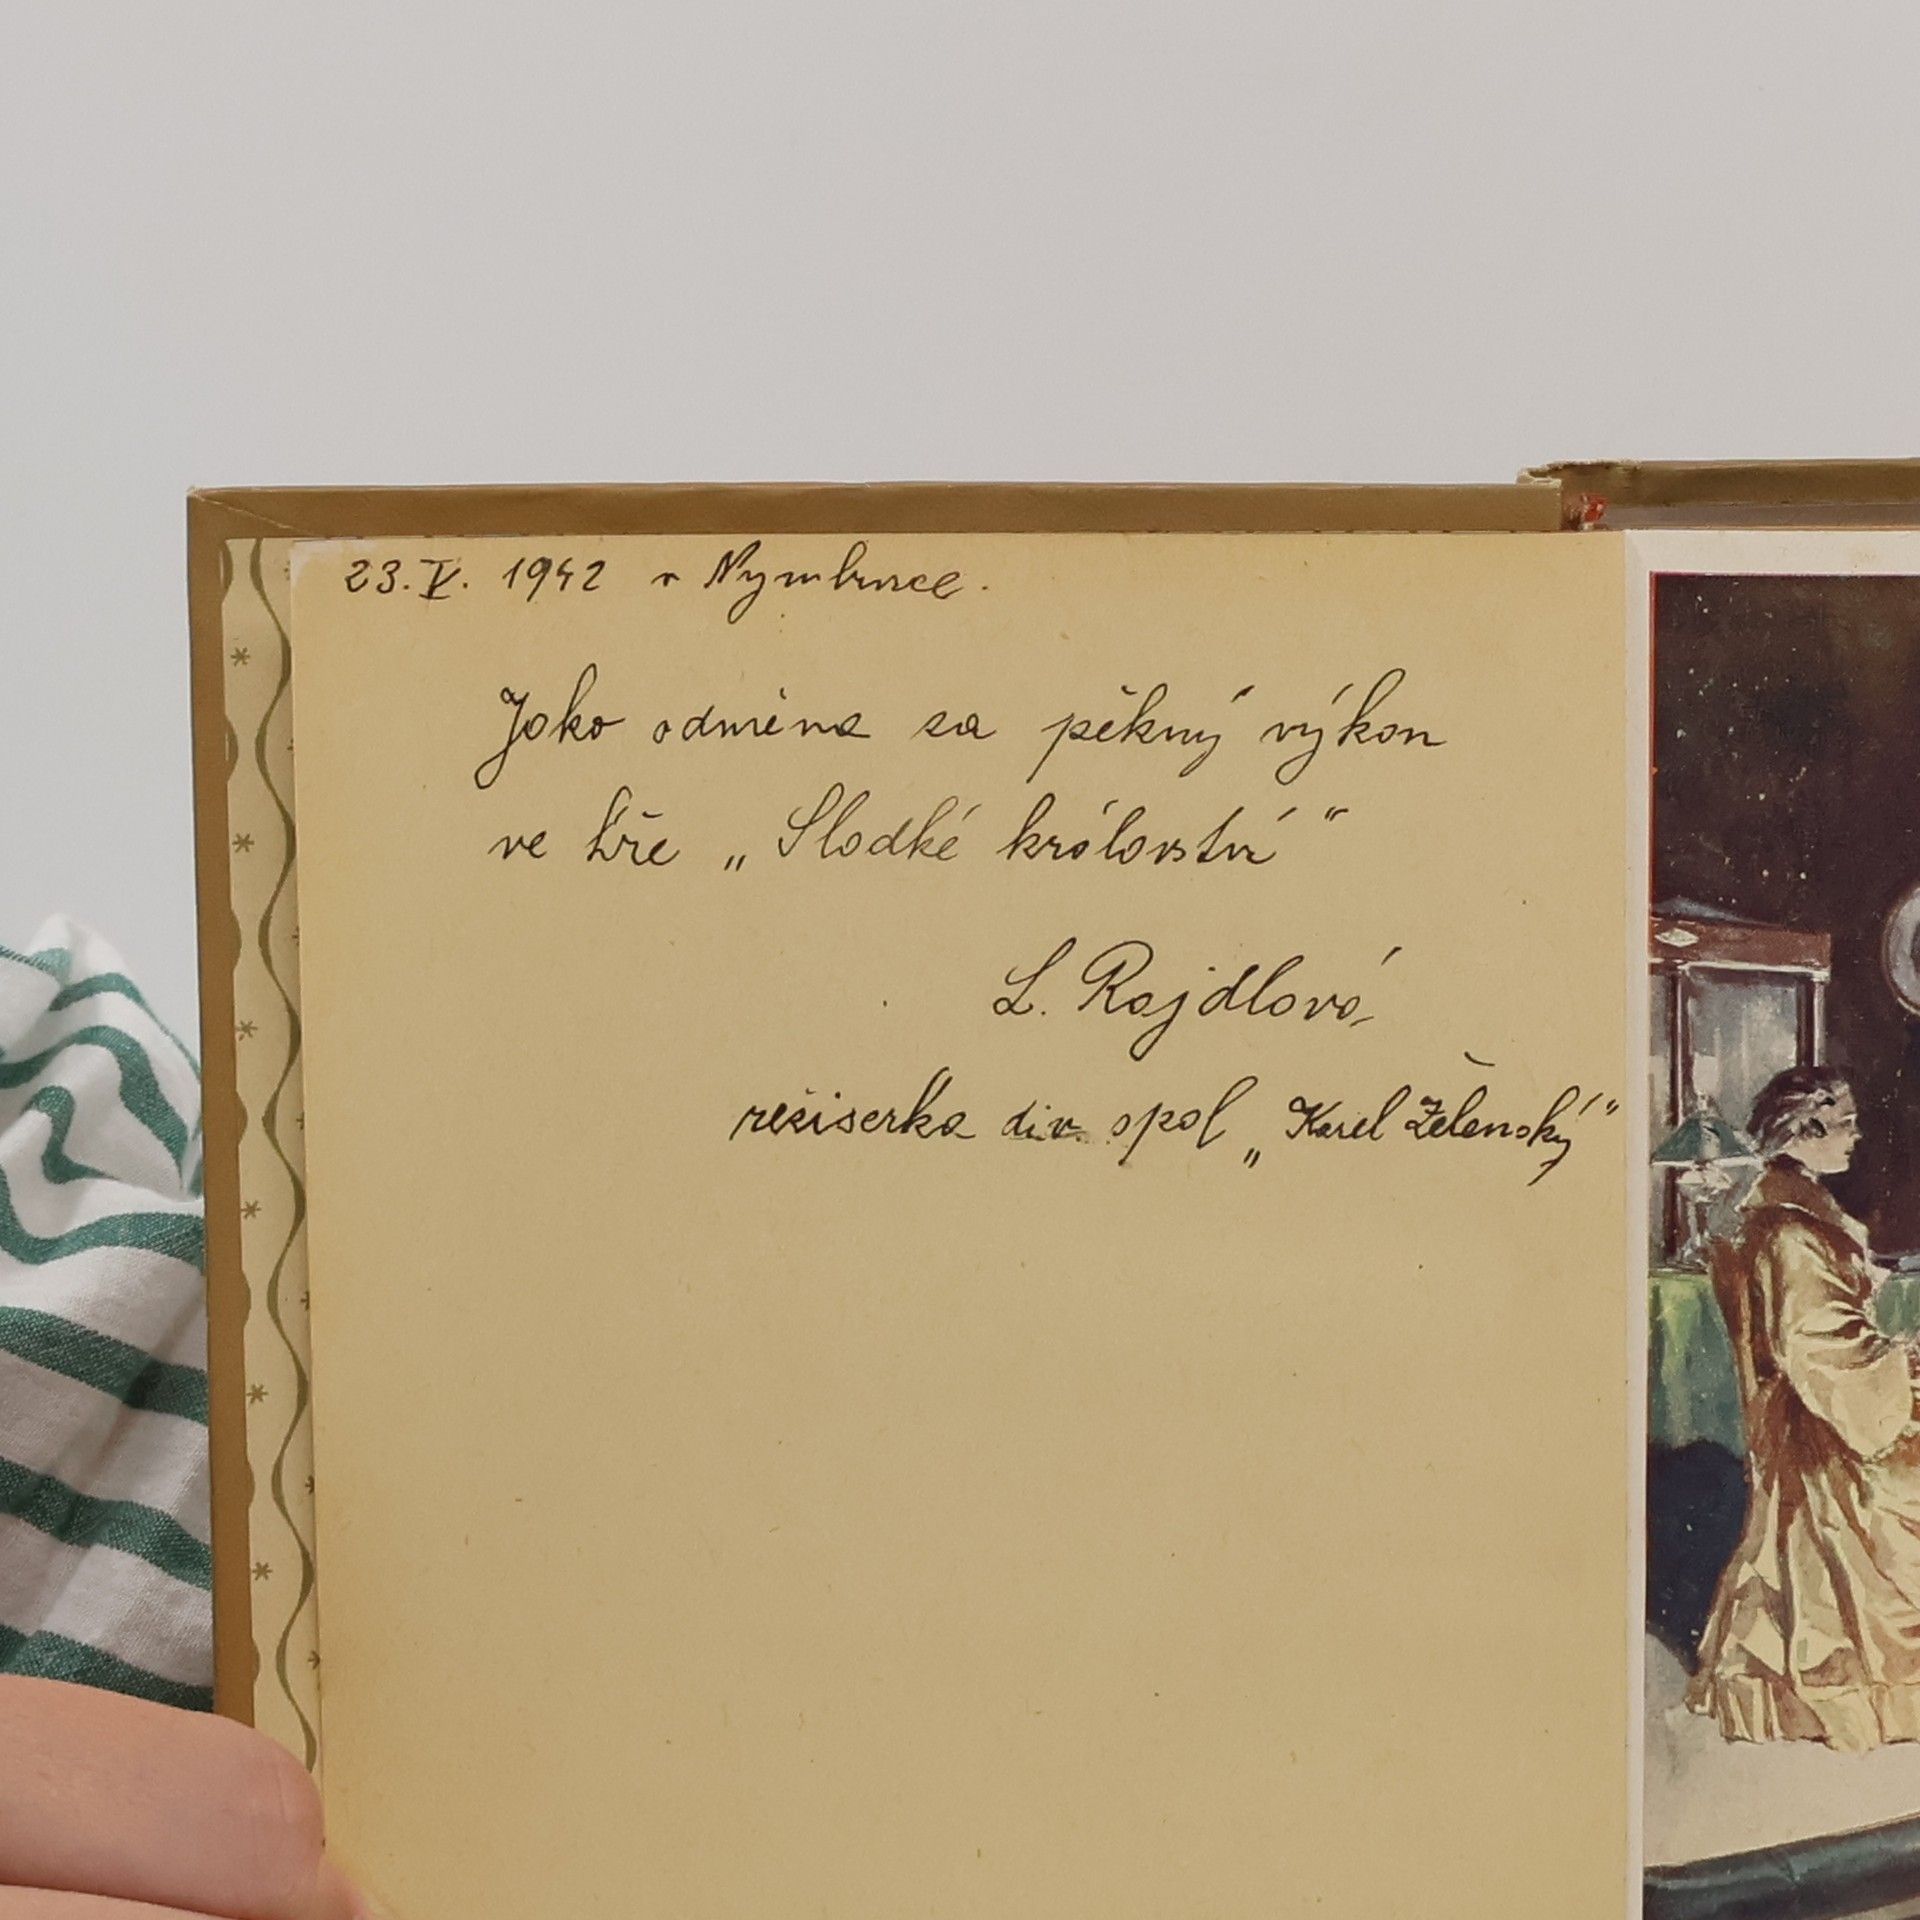 23. V. 1942 v Nymburce.
Jako odměna za pěkný výkon
ve hře „Sladké království"
L. Rajdlová,
režiserka div. spol „Karel Želenský"